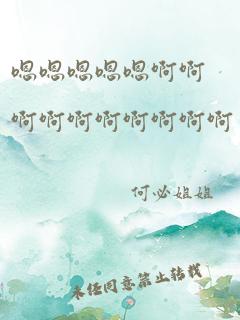 嗯嗯嗯嗯嗯啊啊
啊啊啊啊啊啊啊啊
何必姐姐
未经同意禁止转载